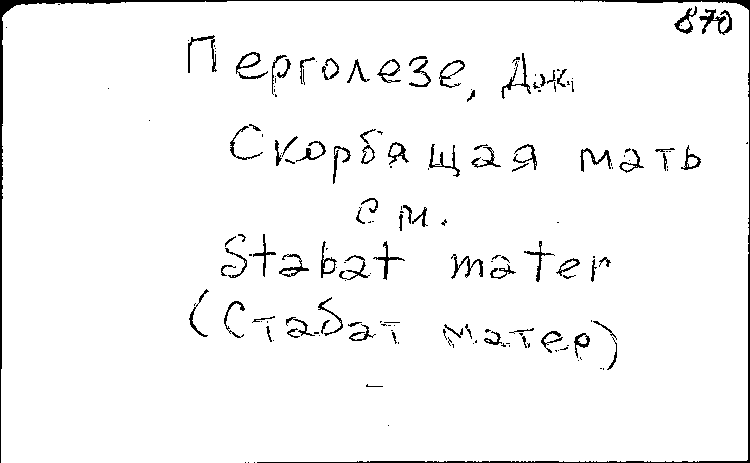 870
Перголезе, Дж.
Скорбящая мать
см.
Stabat mater
(Стабат матер)